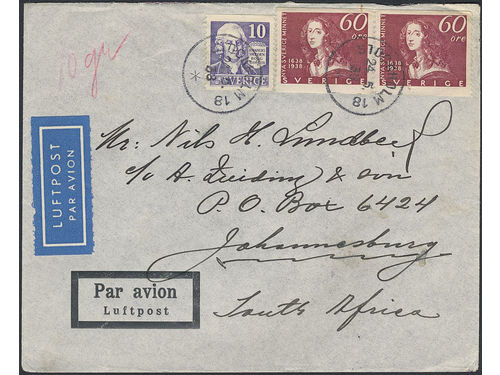 10 gr
10
SVERIGE
60
öre
NYA SVERIGE MINNET
1638
1938
SVERIGE
60
öre
NYA SVERIGE MINNET
1638
1938
SVERIGE
LM 18
24. 5.
LM 18
LUFTPOST
PAR AVION
Mr. Nils H. Lundberg
c/o A. Zeiding & son
P. O. Box 6424
Johannesburg
South Africa
Par avion
Luftpost